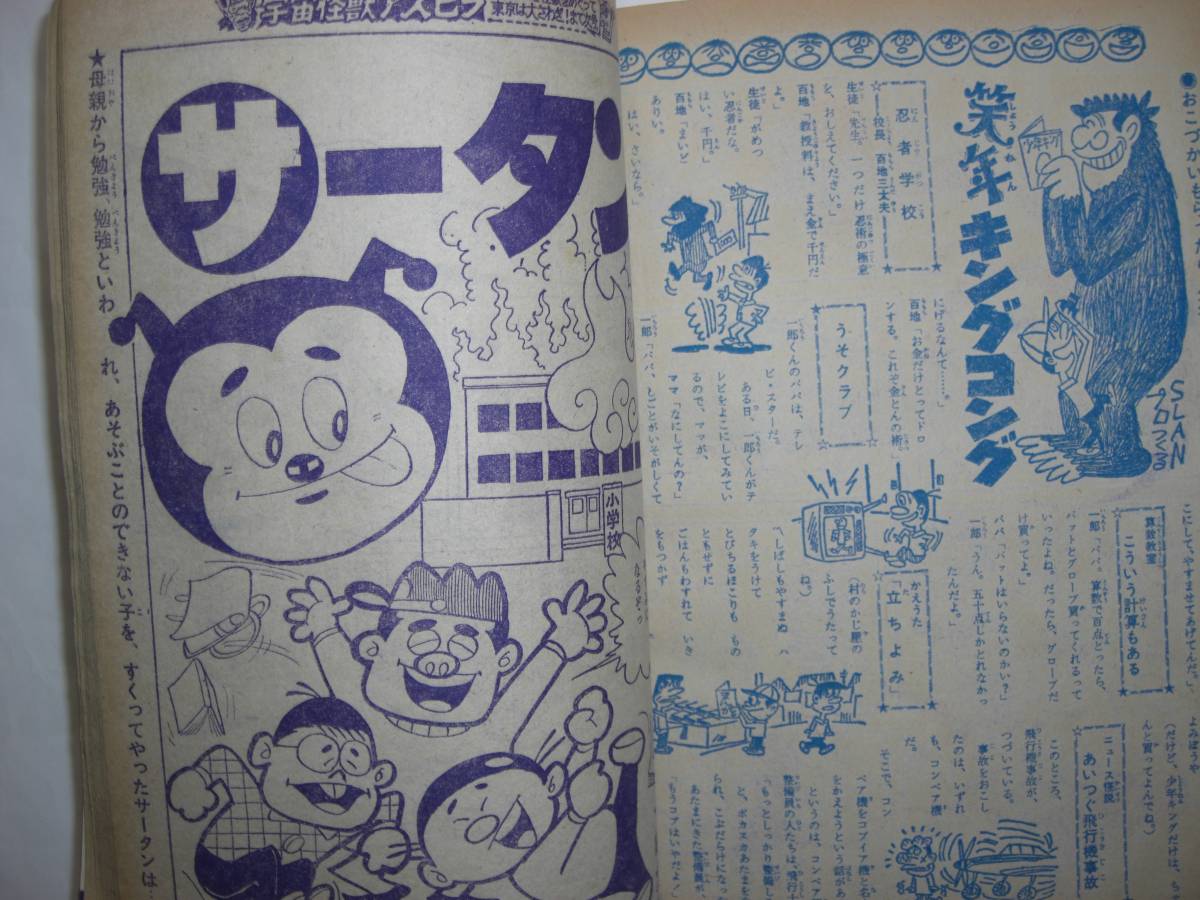 笑年キングコング
SLAN
プロつくる
忍者学校
校長 百地三太夫
生徒「先生。一つだけ忍術の極意
を、おしえてください。」
百地「教授料は、まえ金で千円だ
よ。」
生徒「がめつ
い忍者だな。
はい、千円。」
百地「まいど
ありい。
はい、さいなら。」
にげるなんて……。」
百地「お金だけとってドロ
ンする。これぞ金とんの術」
うそクラブ
一郎くんのパパは、テレ
ビ・スターだ。
ある日。一郎くんがテ
レビをよこにしてみてい
るので、ママが、
ママ「なにしてんの？」
一郎「パパ、しごとがいそがしくて
こにしてやすませてあげてんだ。」
算数教室
こういう計算もある
一郎「パパ、算数で百点とったら、
バットとグローブ買ってくれるって
いったよね。だったら、グローブだ
け買ってよ。」
パパ「バットはいらないのかい？」
一郎「うん。五十点しかとれなかっ
たんだよ。」
かえうた
「立ちよみ」
（村のかじ屋の
ふしでうたって
ね）
〽しばしもやすまぬ ハ
タキをうけて
とびちるほこりも もの
ともせずに
ごはんもわすれて いき
をもつかず
よみほうや
（だけど、少年キングだけは、ち
んと買ってよんでね）
ニュース怪談
あいつぐ飛行機事故
このところ、
飛行機事故が、
つづいている。
事故をおこし
たのは、いずれ
も、コンベア機
だ。
そこで、コン
ベア機をコブイア機と名
をかえようという話があ
というのは、コンベア
整備員の人たちは、飛行士
「もっとしっかり整備し
と、ポカスカあたまを
られ、こぶだらけになっ
あたまにきた整備員が、
「もうコブはいやだよ！
宇宙怪獣アスピラ
サータン
小学校
なるぞっ
★母親から勉強、勉強といわれ、あそぶことのできない子を、すくってやったサータンは…